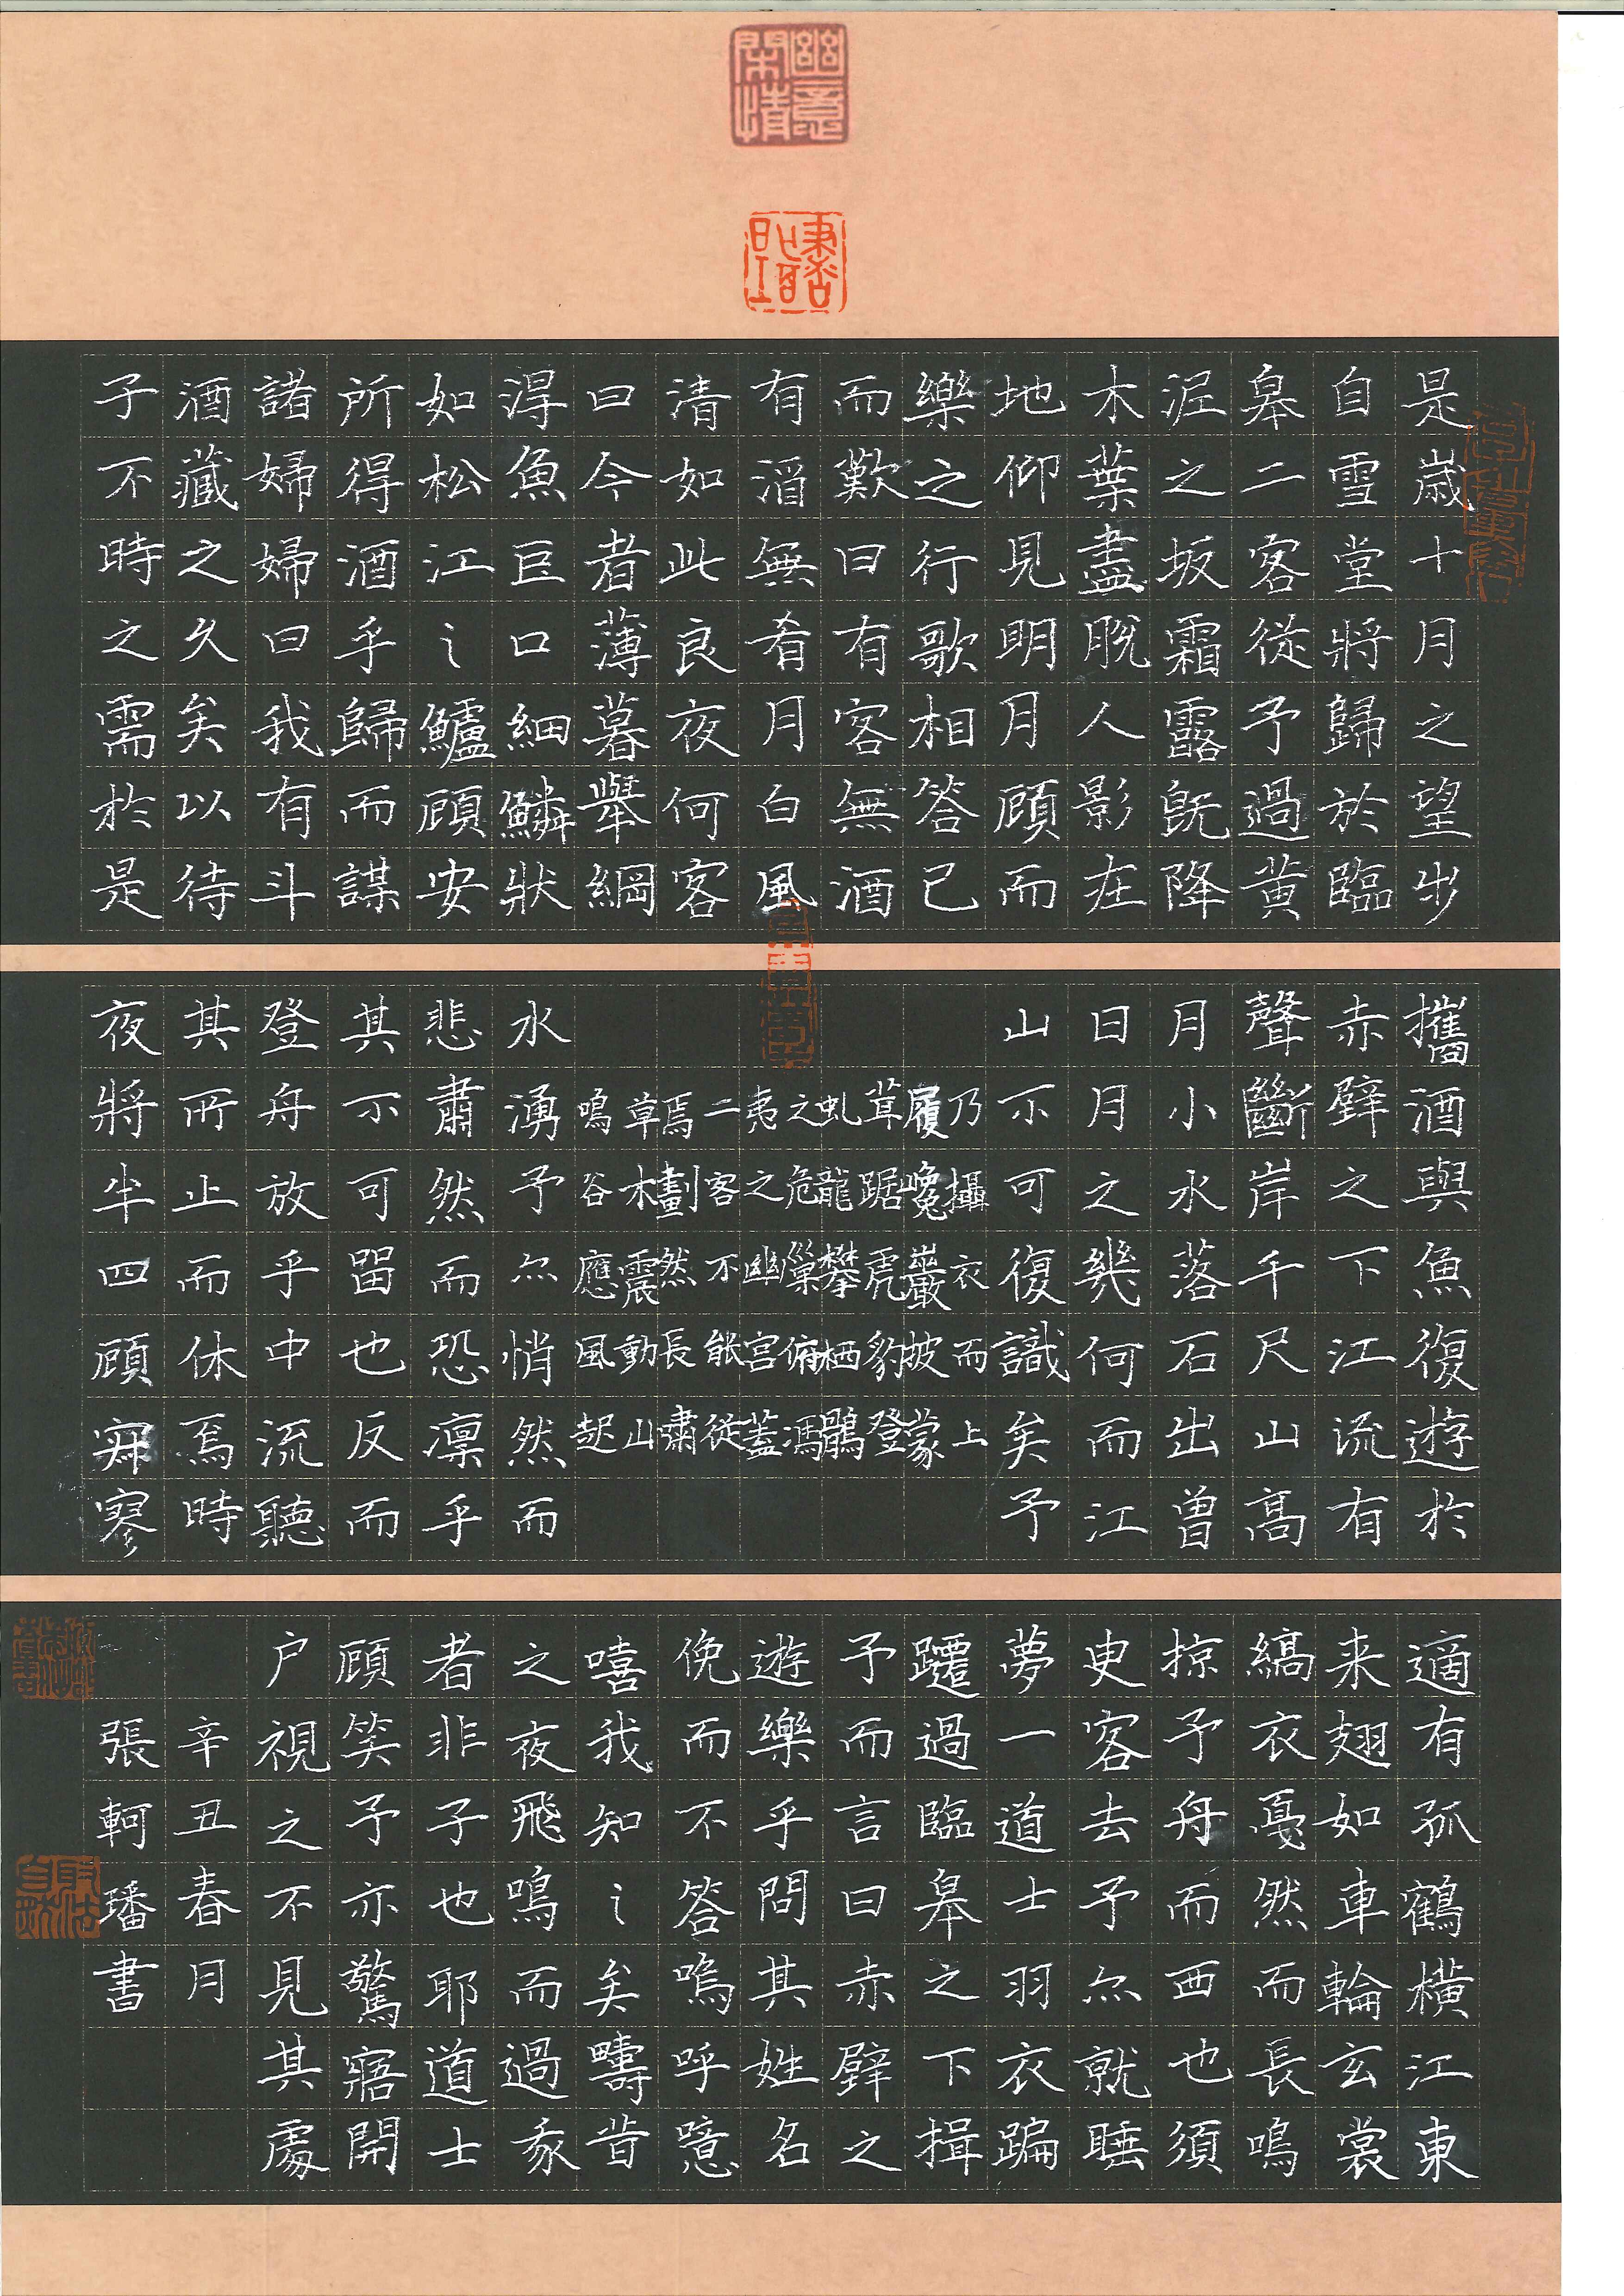 幽意閑情
是歳十月之望步
自雪堂將歸於臨
皋二客從予過黄
泥之坂霜露既降
木葉盡脫人影在
地仰見明月顧而
樂之行歌相答已
而歎曰有客無酒
有酒無肴月白風
清如此良夜何客
曰今者薄暮舉網
得魚巨口細鱗狀
如松江之鱸顧安
所得酒乎歸而謀
諸婦婦曰我有斗
酒藏之久矣以待
子不時之需於是
攜酒與魚復遊於
赤壁之下江流有
聲斷岸千尺山高
月小水落石出曾
日月之幾何而江
山不可復識矣予
乃攝衣而上
履巉巖披蒙
茸踞虎豹登
虬龍攀栖鶻
之危巢俯馮
夷之幽宮蓋
二客不能從
焉劃然長嘯
草木震動山
鳴谷應風起
水湧予亦悄然而
悲肅然而恐凛乎
其不可留也反而
登舟放乎中流聽
其所止而休焉時
夜將半四顧寂寥
適有孤鶴橫江東
来翅如車輪玄裳
縞衣戛然而長鳴
掠予舟而西也須
臾客去予亦就睡
夢一道士羽衣蹁
躚過臨皋之下揖
予而言曰赤壁之
遊樂乎問其姓名
俛而不答嗚呼噫
嘻我知之矣疇昔
之夜飛鳴而過我
者非子也耶道士
顧笑予亦驚寤開
户視之不見其處
辛丑春月
張軻璠書